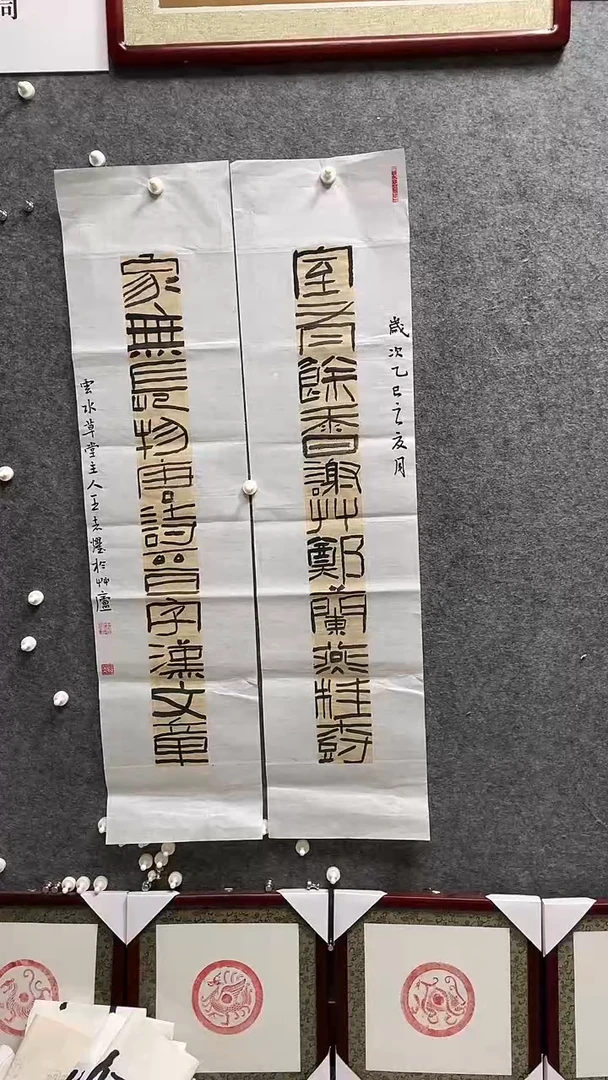 歲次乙巳之亥月
室有餘香謝艸鄭蘭燕桂尌
家無長物唐詩晉字漢文章
雲水草堂主人王志燿於艸廬